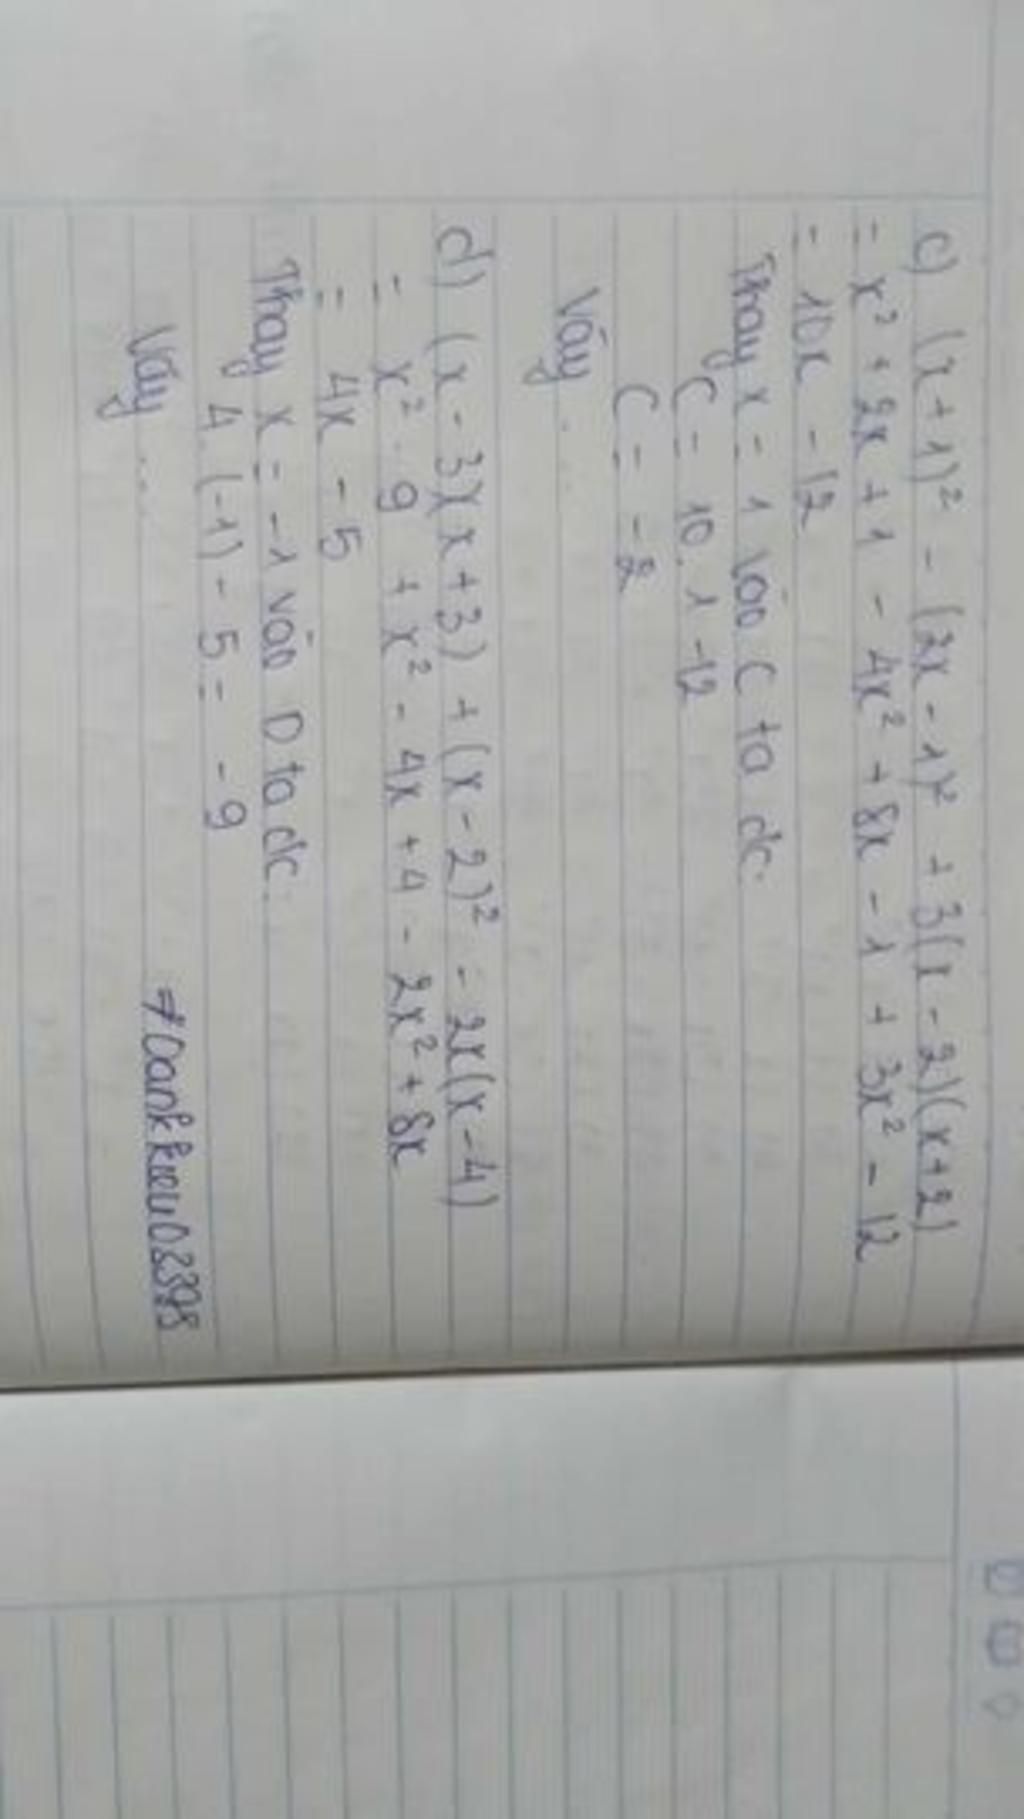 c) (x+1)² - (2x-1)² + 3(x-2)(x+2)
= x² + 2x + 1 - 4x² + 8x - 1 + 3x² - 12
= 10x - 12
Thay x = 1 vào C ta dc.
C = 10.1 - 12
C = -2
Vậy ...
d) (x-3)(x+3) + (x-2)² - 2x(x-4)
= x² - 9 + x² - 4x + 4 - 2x² + 8x
= 4x - 5
Thay x = -1 vào D ta dc.
4.(-1) - 5 = -9
Vậy ...